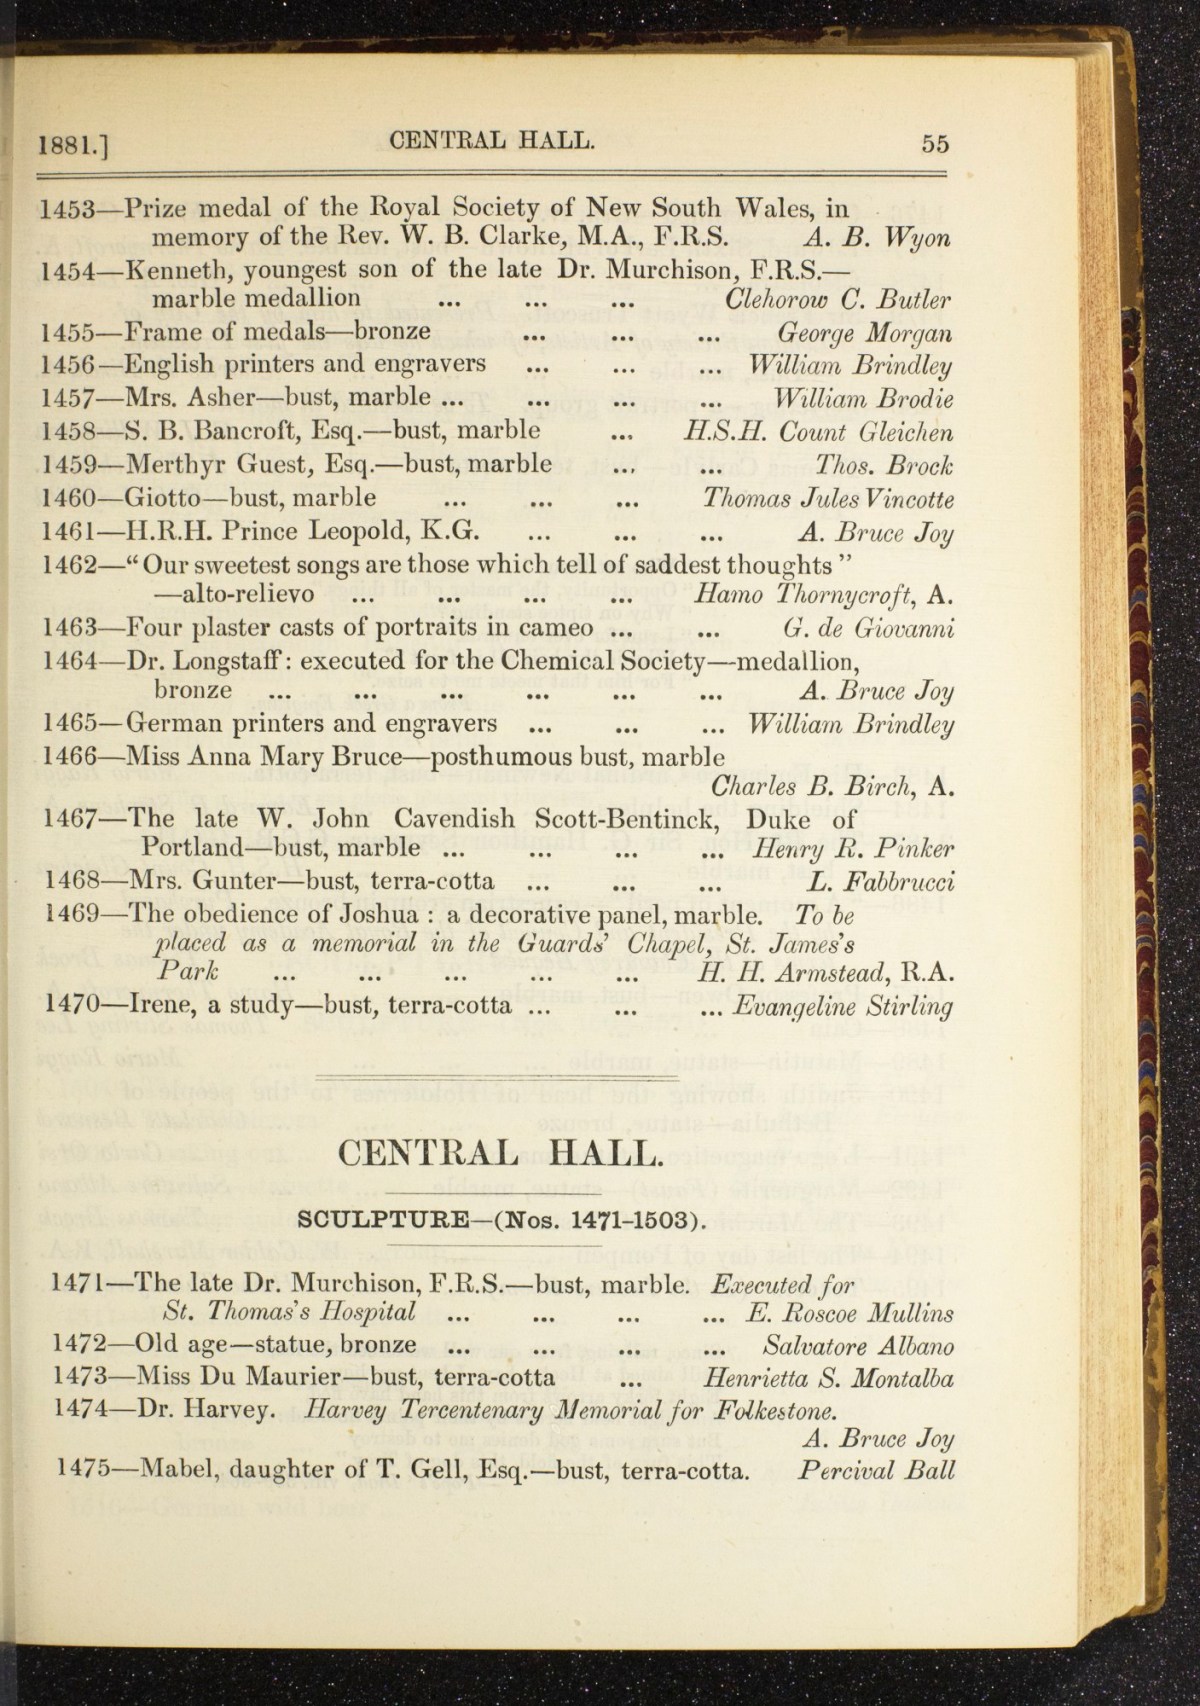 1881.] CENTRAL HALL. 55
1453—Prize medal of the Royal Society of New South Wales, in
memory of the Rev. W. B. Clarke, M.A., F.R.S. A. B. Wyon
1454—Kenneth, youngest son of the late Dr. Murchison, F.R.S.—
marble medallion ... ... ... Clehorow C. Butler
1455—Frame of medals—bronze ... ... ... George Morgan
1456—English printers and engravers ... ... ... William Brindley
1457—Mrs. Asher—bust, marble ... ... ... ... William Brodie
1458—S. B. Bancroft, Esq.—bust, marble ... H.S.H. Count Gleichen
1459—Merthyr Guest, Esq.—bust, marble ... ... Thos. Brock
1460—Giotto—bust, marble ... ... ... Thomas Jules Vincotte
1461—H.R.H. Prince Leopold, K.G. ... ... ... A. Bruce Joy
1462—“Our sweetest songs are those which tell of saddest thoughts”
—alto-relievo ... ... ... ... Hamo Thornycroft, A.
1463—Four plaster casts of portraits in cameo ... ... G. de Giovanni
1464—Dr. Longstaff: executed for the Chemical Society—medallion,
bronze ... ... ... ... ... ... A. Bruce Joy
1465—German printers and engravers ... ... ... William Brindley
1466—Miss Anna Mary Bruce—posthumous bust, marble
Charles B. Birch, A.
1467—The late W. John Cavendish Scott-Bentinck, Duke of
Portland—bust, marble ... ... ... ... Henry R. Pinker
1468—Mrs. Gunter—bust, terra-cotta ... ... ... L. Fabbrucci
1469—The obedience of Joshua : a decorative panel, marble. To be
placed as a memorial in the Guards' Chapel, St. James's
Park ... ... ... ... ... H. H. Armstead, R.A.
1470—Irene, a study—bust, terra-cotta ... ... ... Evangeline Stirling
CENTRAL HALL.
SCULPTURE—(Nos. 1471-1503).
1471—The late Dr. Murchison, F.R.S.—bust, marble. Executed for
St. Thomas's Hospital ... ... ... ... E. Roscoe Mullins
1472—Old age—statue, bronze ... ... ... ... Salvatore Albano
1473—Miss Du Maurier—bust, terra-cotta ... Henrietta S. Montalba
1474—Dr. Harvey. Harvey Tercentenary Memorial for Folkestone.
A. Bruce Joy
1475—Mabel, daughter of T. Gell, Esq.—bust, terra-cotta. Percival Ball